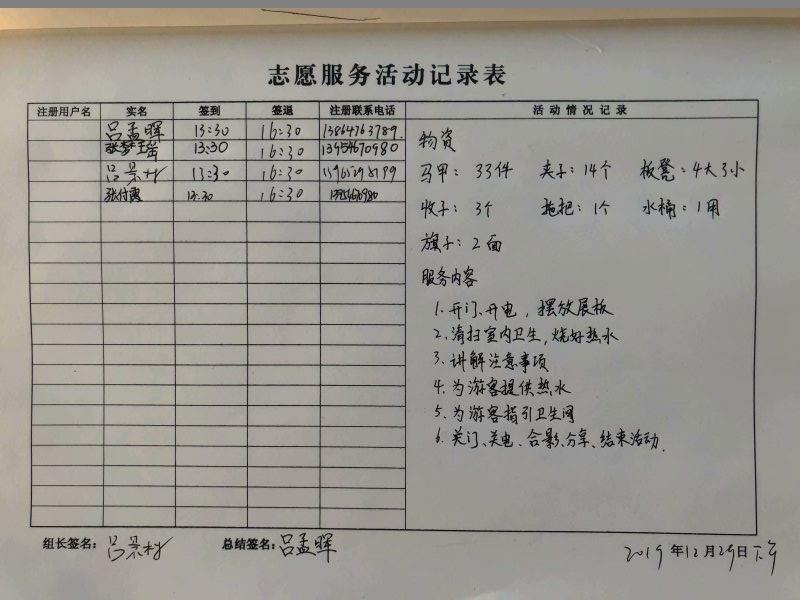 志愿服务活动记录表
注册用户名 实名 签到 签退 注册联系电话 活动情况记录
吕孟晖 13:30 16:30 13864763789
张梦瑶 13:30 16:30 13954670980
吕景材 13:30 16:30
张付霞 13:30 16:30 13954670980
物资
马甲：33件 夹子：14个 板凳：4大3小
收子：3个 拖把：1个 水桶：1用
旗子：2面
服务内容
1.开门、开电，摆放展板
2.清扫室内卫生，烧好热水
3.讲解注意事项
4.为游客提供热水
5.为游客指引卫生间
6.关门、关电、合影、分享、结束活动.
组长签名：吕景材 总结签名：吕孟晖
2019年12月29日下午